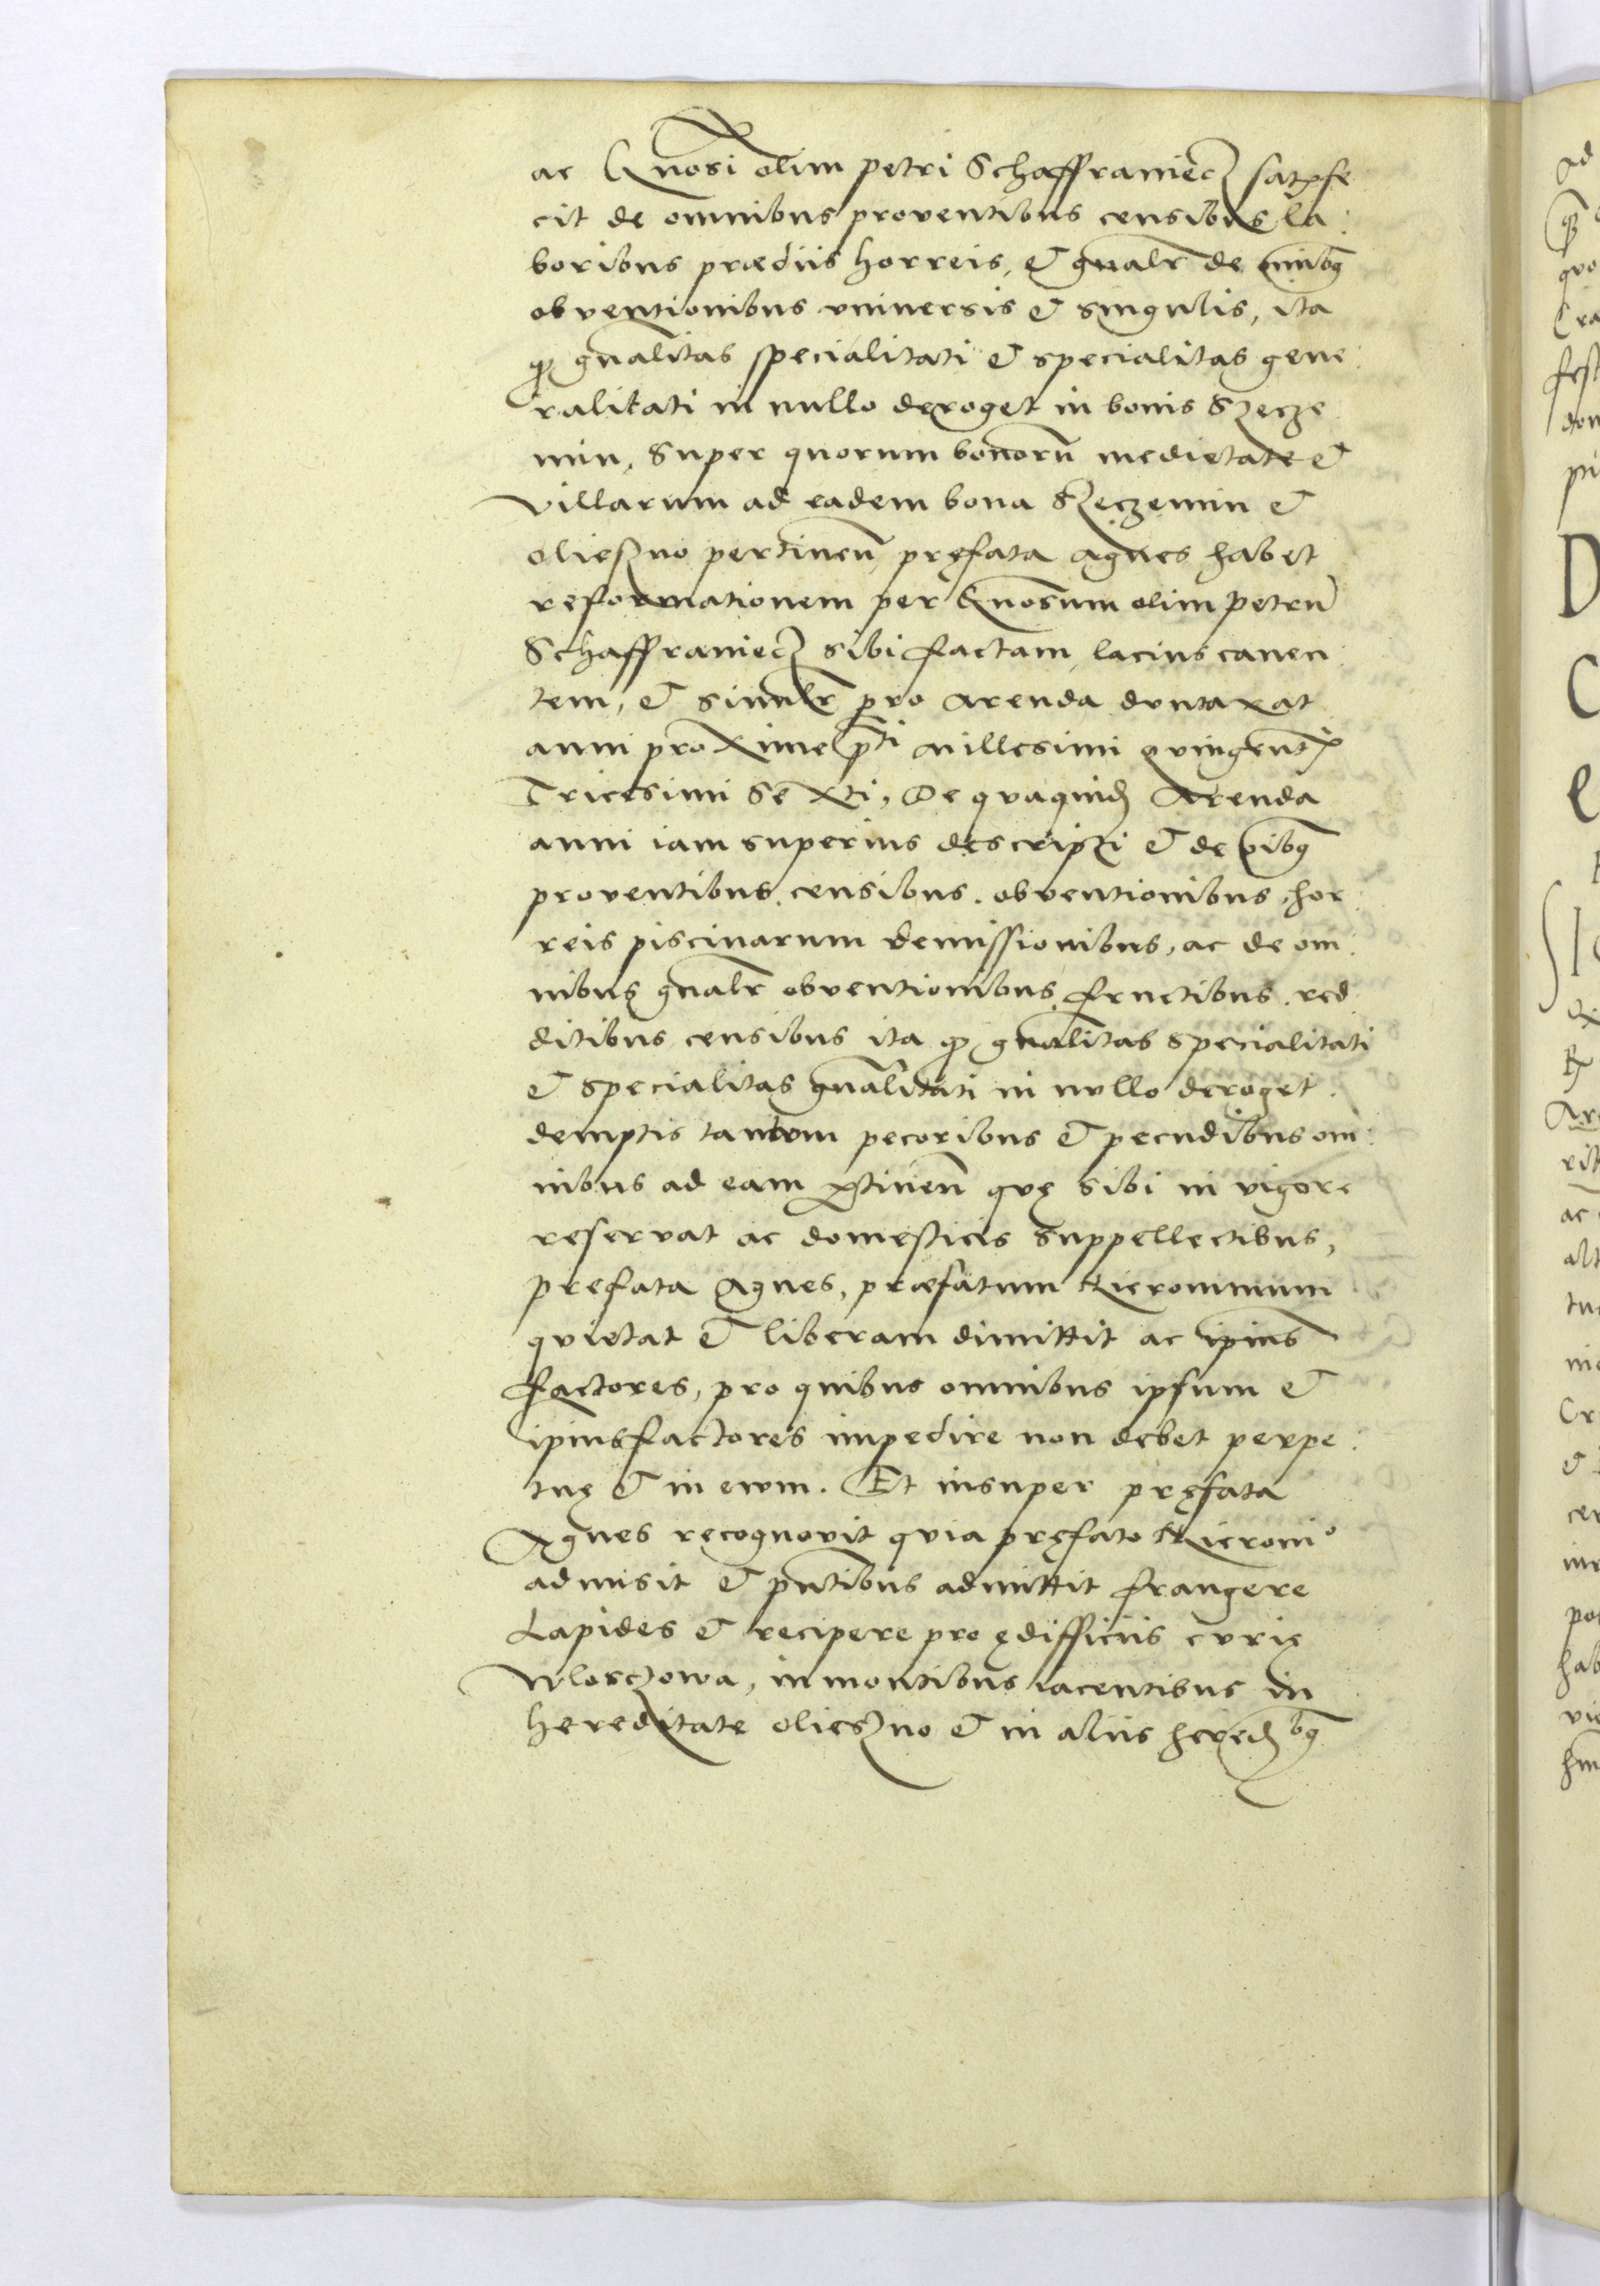 ac Gnosi olim petri Schaffraniecz satisfe
cit de omnibus proventibus censibus la:
boribus prædiis horreis, et gnalr de omibꝫ
obventionibus vniuersis et singulis, ita
ꝙ gnalitas specialitati et specialitas gene:
ralitati in nullo deroget in bonis Szecze
min, Super quorum bonorũ medietate et
villarum ad eadem bona Szeczemin et
oliesno pertinen̄ pręfata agnes habet
reformationem per Gnosum olim petrū
Schaffraniecz sibi factam lacius canen
tem, et similr pro arenda duntaxat
anni proxime pñti millesimi quingent
Tricesimi Sexti, De quaquidꝫ Arenda
anni iam superius descripti et de oibꝫ
proventibus censibus. obventionibus, hor
reis piscinarum demissionibus, ac de om:
nibus gnalr obventionibus fructibus. red
ditibus censibus ita ꝙ gnalitas specialitati
et specialitas gnalitati in nullo deroget.
demptis tantum pecoribus et pecudibus om:
nibus ad eam ꝑtinen̄ quę sibi in vigore
reservat ac domesticis suppellectibus,
prefata Agnes, præfatum Hieronimum
quietat et liberam dimittit ac ipius
factores, pro quibus omnibus ipsum et
ipius factores impedire non debet perpe:
tuę et in ewm. Et insuper pręfata
Agnes recognovit quia pręfato Hieronio
admisit et pntibus admittit frangere
Lapides et recipere pro ędifficiis curię
Wlosczowa, in montibus iacentibus in
hereditate oliesno et in aliis heredꝫbꝫ
Ad
quo
Cra
fest
dom
pi
D
C
e
Are
rit
ac
alt
tu
Cr
et
cer
por
hab